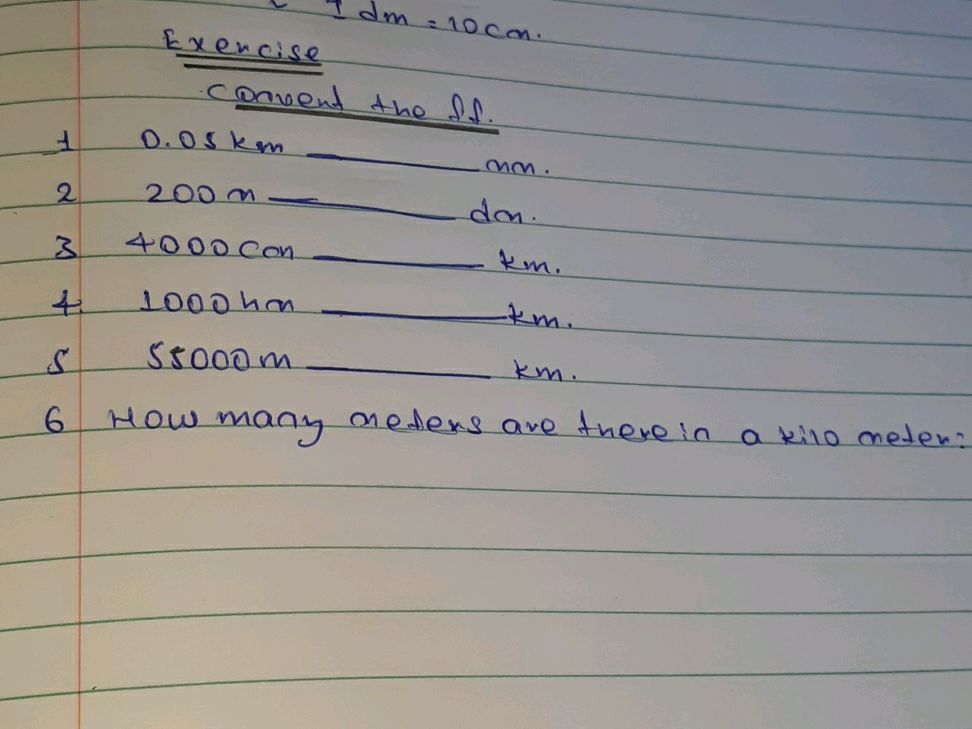 1 dm = 10cm.
Exercise
Convert the ff.
1 0.05 km ______ mm.
2 200m ______ dm.
3 4000cm ______ km.
4. 1000hm ______ km.
5 55000m ______ km.
6 How many meters are there in a kilo meter: